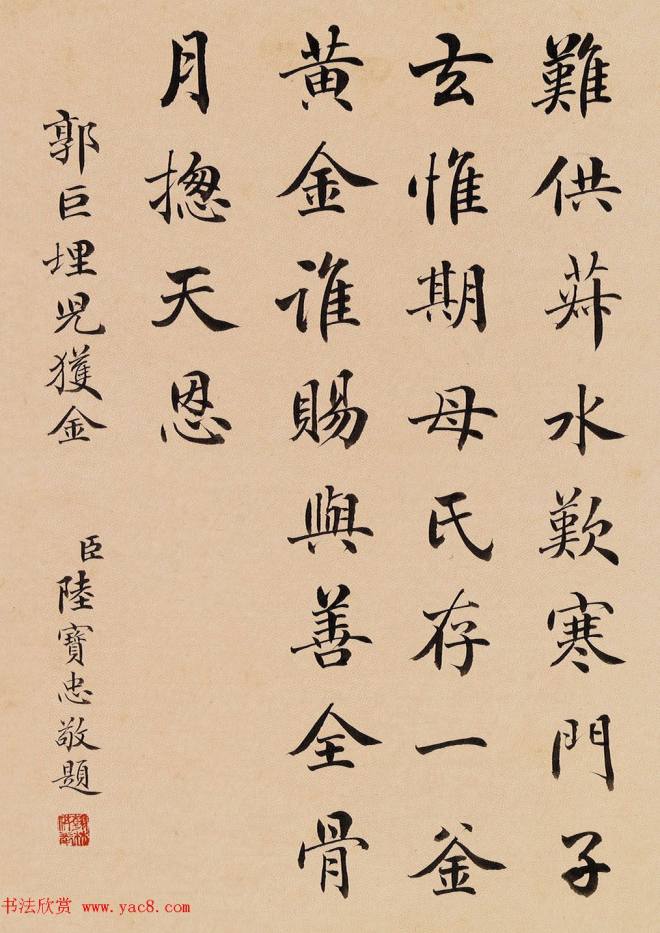 難供菽水歎寒門子
去惟期母氏存一釜
黄金誰賜與善全骨
月揔天恩
郭巨埋児獲金
臣陸寶忠敬題
书法欣赏 www.yac8.com